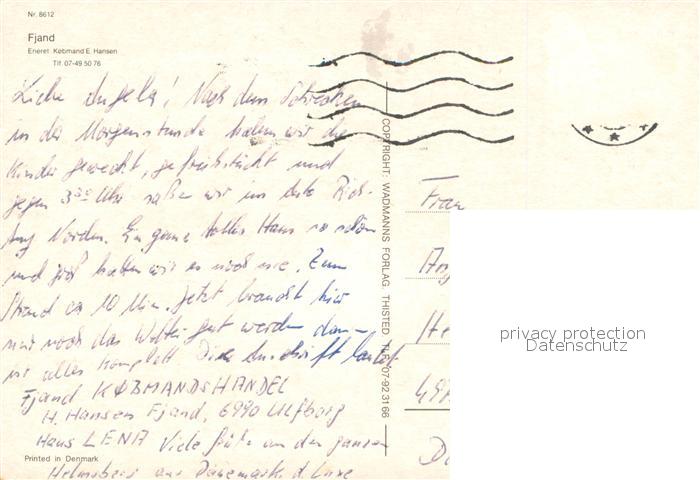 Nr. 8612
Fjand
Eneret Købmand E. Hansen
Tlf. 07-49 50 76
Liebe Angela! Nach dem Schrecken
in der Morgenstunde haben wir die
Kinder geweckt, gefrühstückt und
gegen 3³⁰ Uhr saßen wir im Auto Rich-
tung Norden. Ein ganz tolles Haus so schön
und groß hatten wir es noch nie. Zum
Strand ca 10 Min. Jetzt braucht hier
nur noch das Wetter gut werden dann
ist alles komplett. Die Anschrift lautet
Fjand KØBMANDSHANDEL
H. Hansen Fjand, 6990 Ulfborg
Haus LENA Viele Grüße an den ganzen
aus Dänemark d.
Printed in Denmark
COPYRIGHT: WADMANNS FORLAG. THISTED. TLF. 07-92 31 66
Frau
privacy protection
Datenschutz